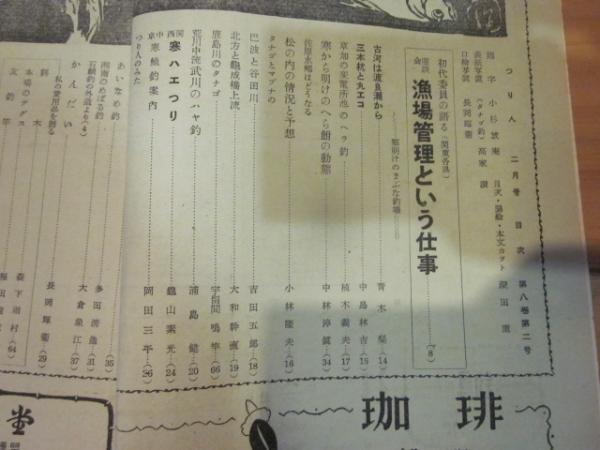 つり人 二月号 目次 第八巻第二号
題字 小杉放庵
目次・扉絵・本文カット 深田重
表紙写真 (タナゴ釣) 高家譲
口絵写真 長岡輝衛
初代委員の語る(関東各県)
座談会 漁場管理という仕事 (8)
寒明けのまぶな釣場
古河は渡良瀬から 青木梨 (14)
三本杭と丸エコ 中島林吉 (15)
草加の変電所池のヘラ釣 植木義夫 (17)
寒から明けのへら鮒の動態 中林淳誠 (34)
佐原水郷はどうなる
松の内の情況と予想 小林隆夫 (16)
タナゴとマブナの
巴波と谷田川 吉田五郎 (18)
北方と亀成橋上流 大和幹直 (19)
鹿島川のタナゴ 鳴竿 (66)
荒川中流武川のハヤ釣 浦島健 (20)
関西 寒ハエつり 亀山素光 (24)
東京中 寒鯉釣案内 岡田三平 (26)
つり人のみた
あいなめ釣 多田清逸 (35)
湘南のめばる釣 (31)
石鯛釣の外道より(4)
かんだい 大倉象江 (37)
私の愛用品を語る
長岡輝衛 (29)
餌木
本場のテグス 森下雨村 (64)
文釣竿
珈琲
堂